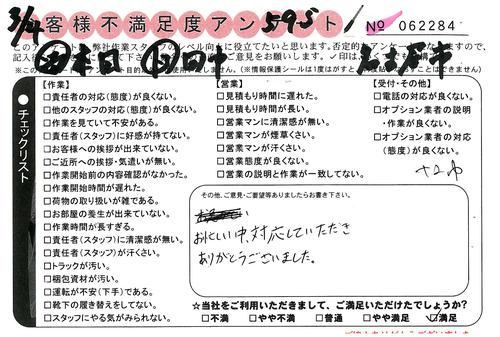 3/4
お客様不満足度アンケート
595
No 062284
このアンケートは、弊社作業スタッフのレベル向上に役立てたいと思います。否定的なアンケートになりますので、
チェックリスト
【作業】
□責任者の対応(態度)が良くない。
□他のスタッフの対応(態度)が良くない。
□作業を見ていて不安がある。
□責任者(スタッフ)に好感が持てない。
□お客様への挨拶が出来ていない。
□ご近所への挨拶・気遣いが無い。
□作業開始前の内容確認がなかった。
□作業開始時間が遅れた。
□荷物の取り扱いが雑である。
□お部屋の養生が出来ていない。
□作業時間が長すぎる。
□責任者(スタッフ)に清潔感が無い。
□責任者(スタッフ)が汗くさい。
□トラックが汚い。
□梱包資材が汚い。
□運転が不安(下手)である。
□靴下の履き替えをしてない。
□スタッフにやる気がみられない。
【営業】
□見積もり時間に遅れた。
□見積もり時間が長い。
□営業マンに清潔感が無い。
□営業マンが煙草くさい。
□営業マンが汗くさい。
□営業態度が良くない。
□営業の説明と作業が一致してない。
【受付・その他】
□電話の対応が良くない。
□オプション業者の説明
・作業が良くない。
□オプション業者の対応
(態度)が良くない。
その他、ご意見・ご要望等ありましたらお書き下さい。
お忙しい中、対応していただき
ありがとうございました。
☆当社をご利用いただきまして、ご満足いただけたでしょうか?
□不満 □やや不満 □普通 □やや満足 ☑満足